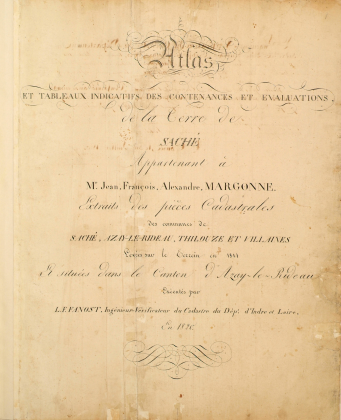 Atlas
ET TABLEAUX INDICATIFS DES CONTENANCES ET EVALUATIONS,
De la Terre de
SACHÉ,
Appartenant à
Mr. Jean, François, Alexandre, MARGONNE,
Extraits des pièces Cadastrales
des communes de
SACHÉ, AZAY-LE-RIDEAU, THILOUZE ET VILLAINES
sur le Terrein en
Et situées dans le Canton d'Azay-le-Rideau
Exécutés par
Ingénieur-Vérificateur du Cadastre du Dépt. d'Indre et Loire,
En 1826.